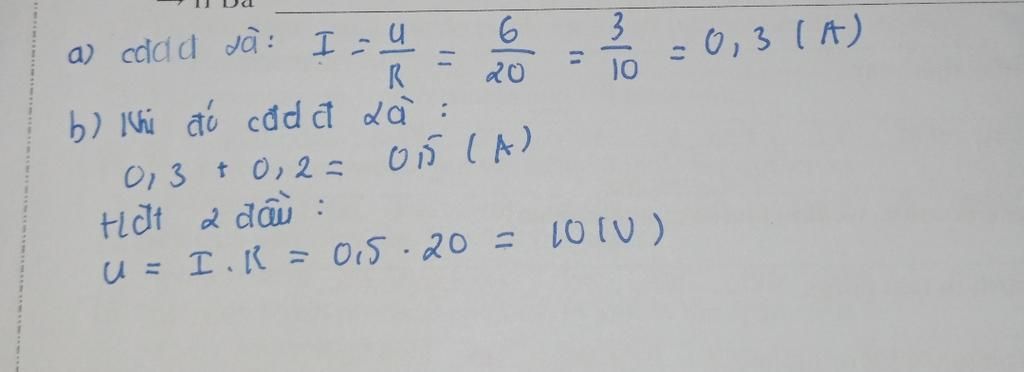 a) cđdđ là: I = U/R = 6/20 = 3/10 = 0,3 (A)
b) Khi đó cđdđ là :
0,3 + 0,2 = 0,5 (A)
Hđt 2 đầu :
U = I . R = 0,5 . 20 = 10 (V)